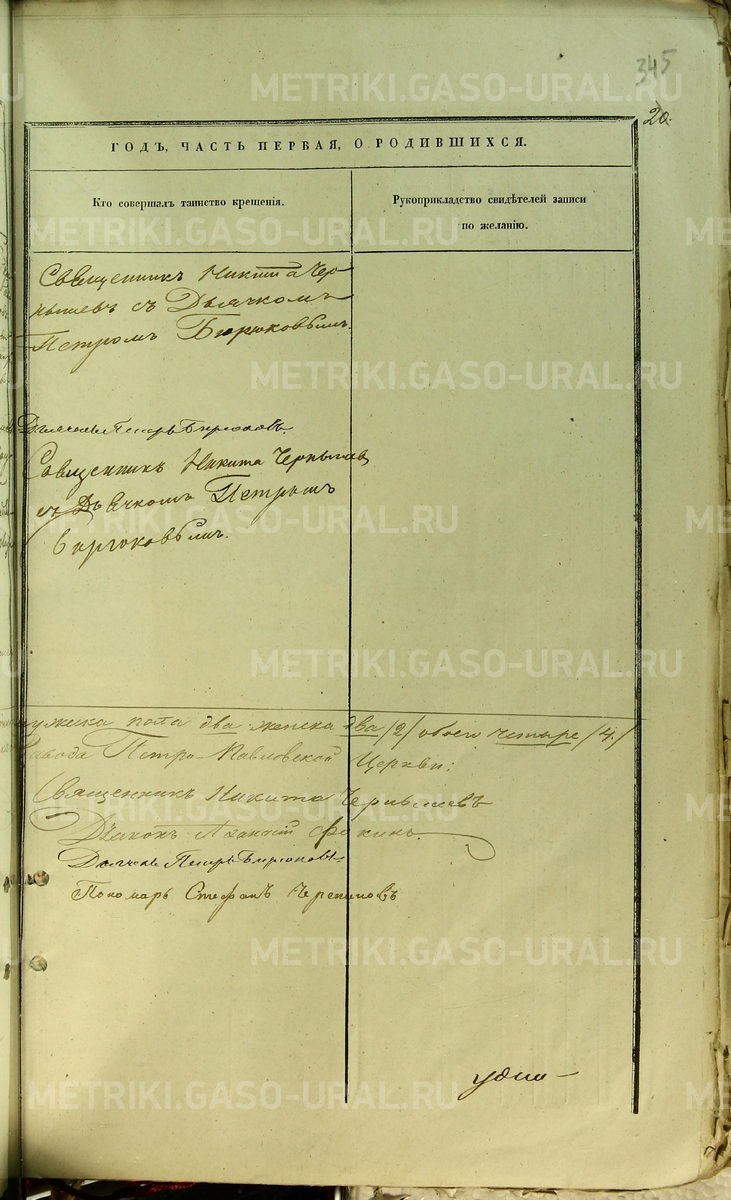 345
20.
ГОДЪ, ЧАСТЬ ПЕРВАЯ, О РОДИВШИХСЯ.
Кто совершалъ таинство крещенія.
Рукоприкладство свидѣтелей записи
по желанію.
Священникъ Никита Чер-
нышевъ съ Дьячкомъ
Петромъ Бирюковымъ.
Дьячекъ Петръ Бирюковъ
Священникъ Никита Чернышев
съ Дьячкомъ Петромъ
Бирюковымъ.
мужска пола два женска два /2/ обоего четыре /4/
завода Петро-Павловской Церкви:
Священникъ Никита Чернышевъ
Діаконъ Фокинъ.
Дьячекъ Петръ Бирюковъ
Пономарь Стефанъ
METRIKI.GASO-URAL.RU